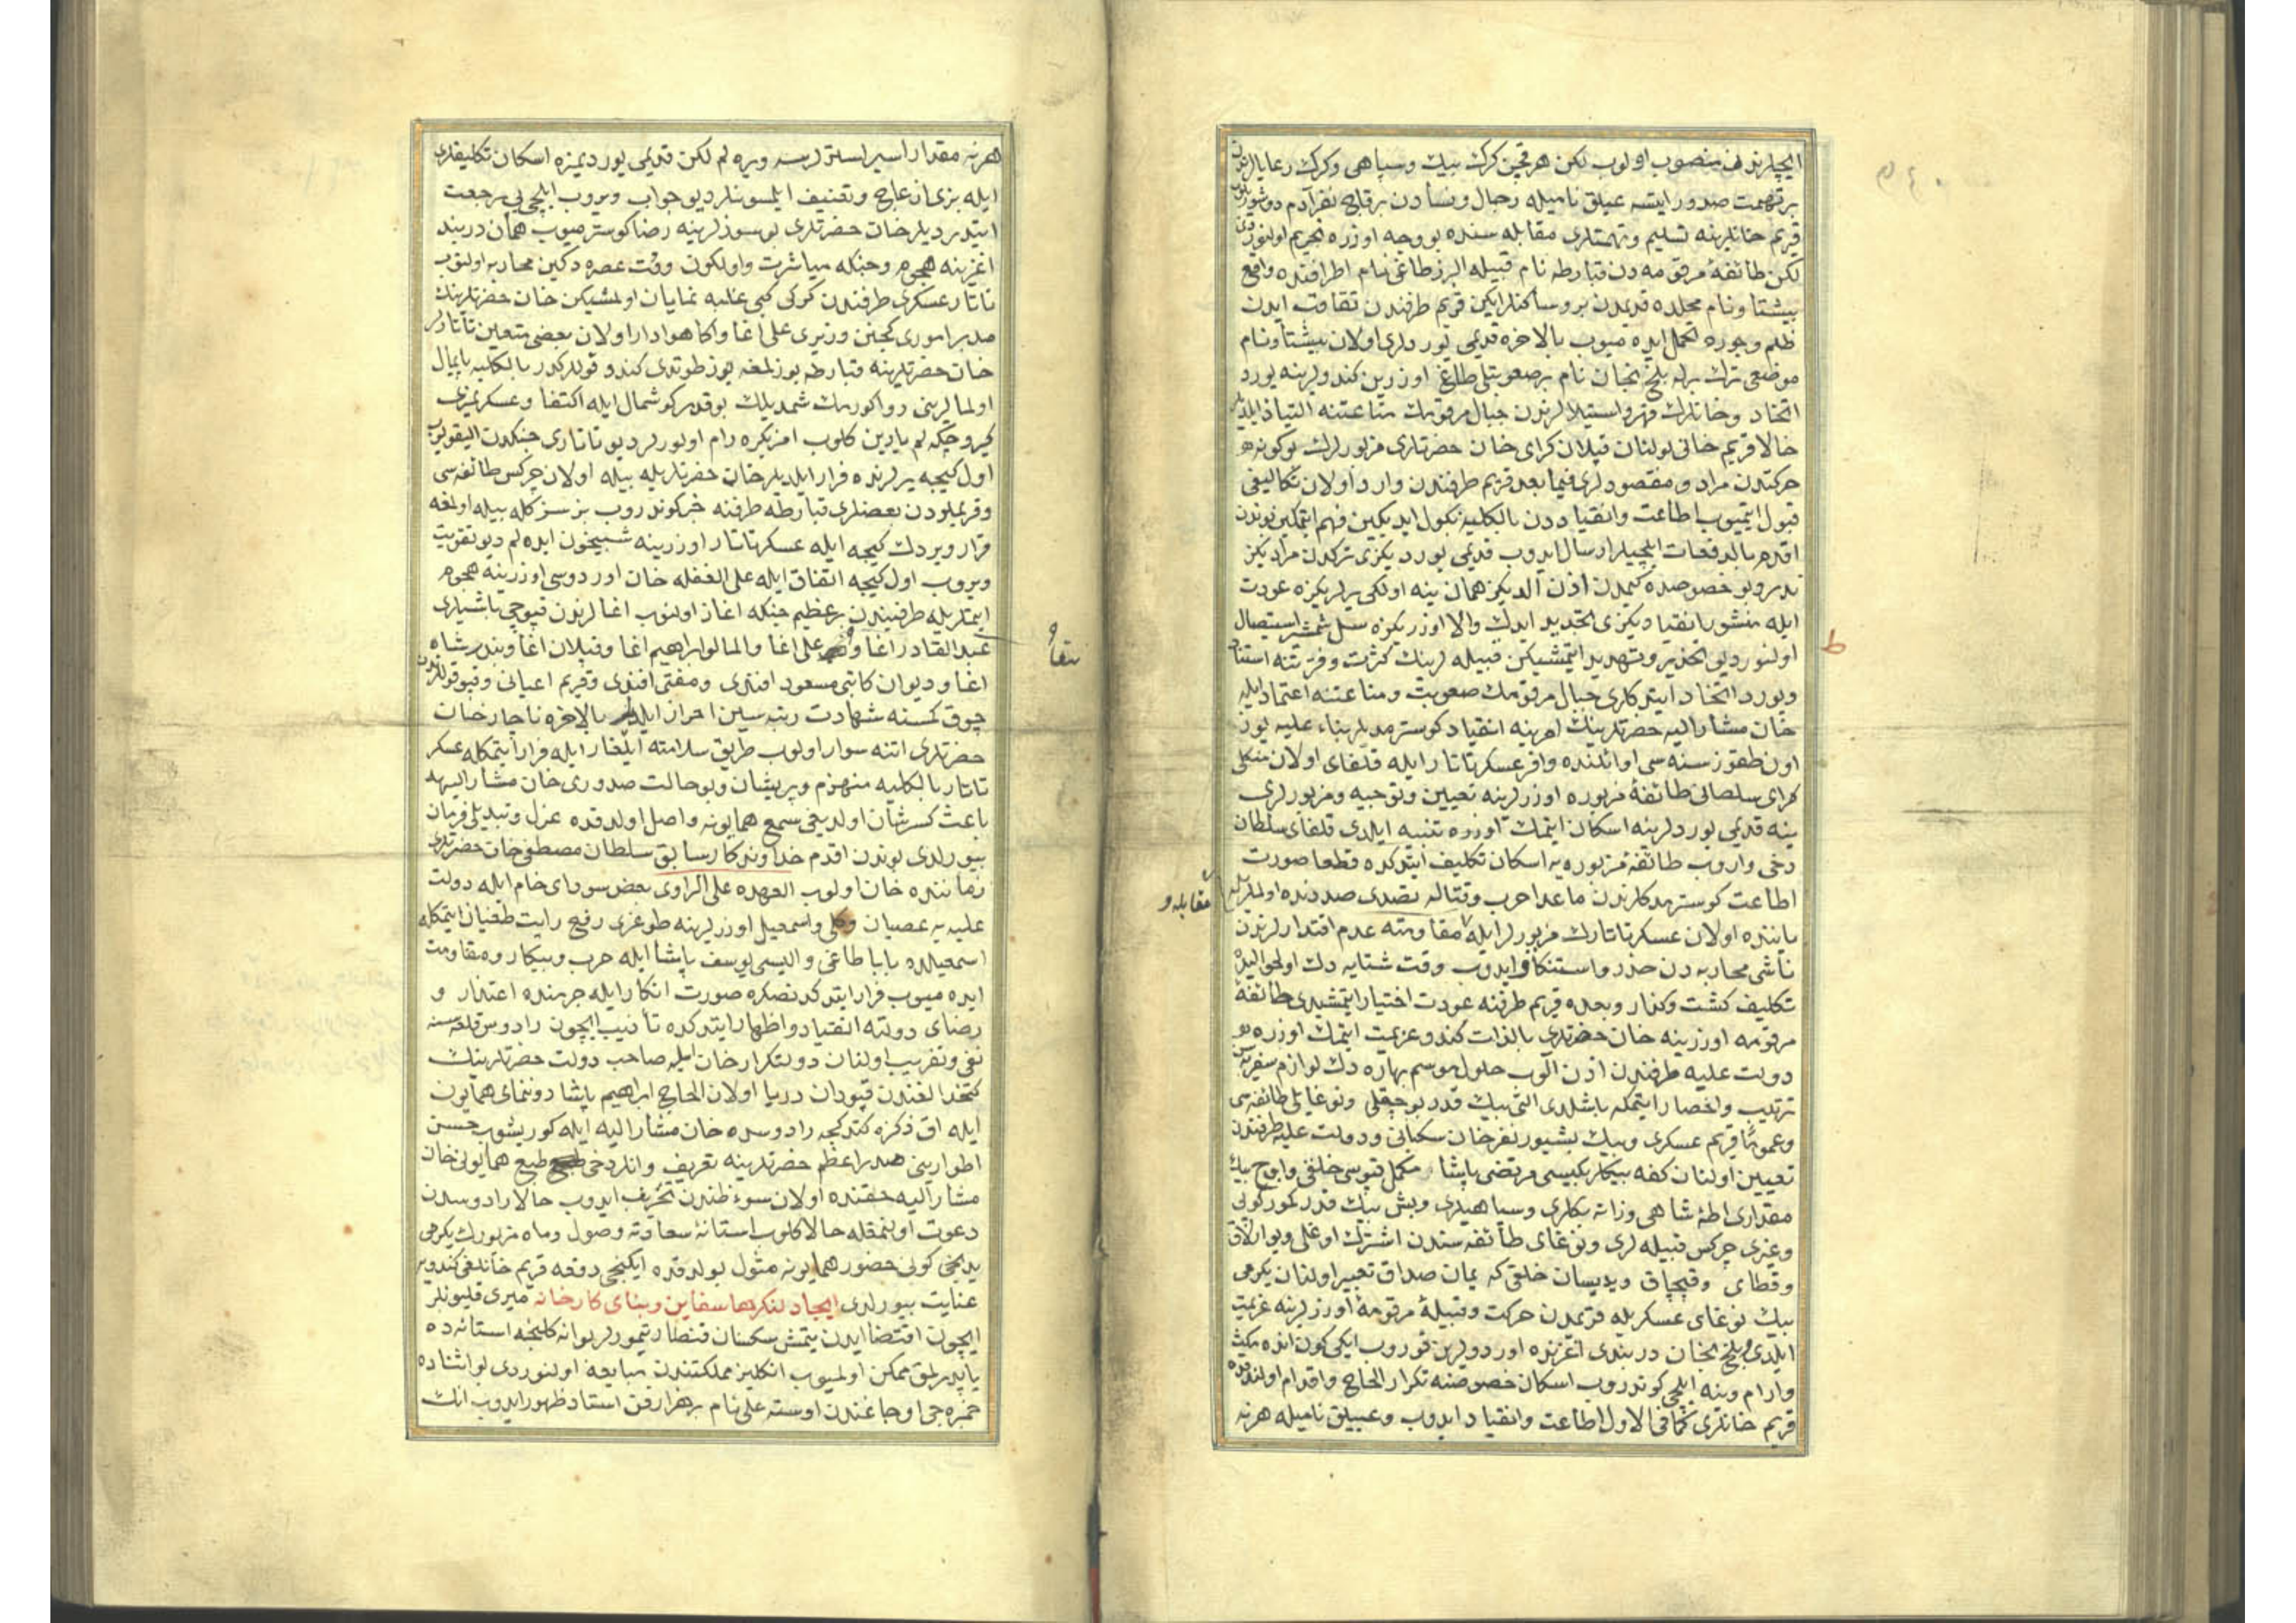 ایچلرندن منصوب اولوب لکن هر قچن کرك بیك وسپاهی وکرك رعایالرندن
بر تهمت صدور ایتسه عیلق نامیله رجال ونسأدن بر قاچ نفر آدم دوشوروب
قریم خانلرینه تسلیم وتهمتلری مقابله سنده بو وجه اوزره تجریم اولنور دی
لکن طائفۀ مرقومه دن قبارطه نام قبیله البرز طاغی نام اطرافنده واقع
بیشتاو نام محلده قدیمدن برو ساکنلر ایکن قریم طرفندن تقاوت ایدن
ظلم وجوره تحمل ایده میوب بالاخره قدیمی یوردلری اولان بیشتاو نام
موضعی ترك برله بلخ نجان نام بر صعوبتلی طاغ اوزرین کندولرینه یورد
اتخاد وخانلرك قهر واستیلالرندن جبال مرقومك مناعتنه التیاذ ایلدیلر
حالا قریم خانی بولنان قپلان کرای خان حضرتلری مزبورلرك بو کونه
حرکتدن مراد ومقصودلری فیما بعد قریم طرفندن وارد اولان تکالیفی
قبول ایتمیوب اطاعت وانقیاددن بالکلیه نکول ایدیکین فهم ایتمکین بوندن
اقدم بالدفعات ایلچیلر ارسال ایدوب قدیمی یوردیکزی ترکدن مرادیکز
ندر وبو خصوصده کیمدن اذن آلدیکز همان ینه اولکی یرلریکزه عودت
ایله منشور انقیادیکزی تجدید ایدك والا اوزریکزه سل شمشیر استیصال
اولنور دیو تحذیر وتهدید ایتمشیکن قبیله لرینك کثرت وفرتنه استناد
ویورد اتخاد ایتدکلری جبال مرقومك صعوبت ومناعتنه اعتماد ایله
خان مشار الیه حضرتلرینك امرینه انقیاد کوسترمدیلر بناء علیه یوز
اون طقوز سنه سی اوائلنده وافر عسکر تاتار ایله قلغای اولان منکلی
کرای سلطانی طائفۀ مزبوره اوزرلرینه تعیین وتوجیه ومزبورلری
ینه قدیمی یوردلرینه اسکان ایتمك اوزره تنبیه ایلدی قلغای سلطان
دخی واروب طائفۀ مزبوره یه اسکان تکلیف ایتدکده قطعا صورت
اطاعت کوسترمدکلرندن ماعدا حرب وقتاله تصدی صددنده اولملریله
مقابله و
یاننده اولان عسکر تاتارك مزبورلر ایله مقاومته عدم اقتدارلرندن
ناشی محاربه دن حذر واستنکاف ایدوب وقت شتایه دك اول حوالیده
تکلیف کشت وکذار وبعده قریم طرفنه عودت اختیار ایتمشیدی طائفۀ
مرقومه اوزرینه خان حضرتلری بالذات کندو عزیمت ایتمك اوزره
دولت علیه طرفندن اذن آلوب حلول موسم بهاره دك لوازم سفریه سن
ترتیب واحضار ایتمکه باشلدی التی بیك قدر بوجقلی ونوغایلی طائفه سی
وعموما قریم عسکری وبیك بشیوز نفر خان سکبانی ودولت علیه طرفندن
تعیین اولنان کفه بیکلربکیسی مرتضی پاشا مکمل قپوسی خلقی واوچ بیك
مقداری اطۀ شاهی وزانه بکلری وسپاهیلری وبش بیك قدر کمورکوی
وغیری چرکس قبیله لری ونوغای طائفه سندن اشترك اوغلی ویوارلاق
وقطای وقپچاق ویدیسان خلقی که یمان صداق تعبیر اولنان یکرمی
بیك نوغای عسکریله قریمدن حرکت وقبیلۀ مرقومه اوزرلرینه عزیمت
ایلدی بلخ نجان دربندی آغزنده اوردولرین قوروب ایکی کون انده مکث
وارام وینه ایلچی کوندروب اسکان خصوصنه تکرار الحاح واقدام اولندقده
قریم خانلری کما فی الاول اطاعت وانقیاد ایدوب وعیلق نامیله هر نه
هر نه مقدار اسیر استرلرسه ویره لم لکن قدیمی یوردیمزه اسکان تکلیفلری
ایله بزی ازعاج وتعنیف ایلمسونلر دیو جواب ویروب ایلچی یی رجعت
ایتدیردیلر خان حضرتلری بو سوزلرینه رضا کوسترمیوب همان دربند
اغزینه هجوم وجنکه مباشرت واول کون وقت عصره دکین محاربه اولنوب
تاتار عسکری طرفندن کوکی کبی غلبه نمایان اولمشیکن خان حضرتلرینك
مدبر اموری کچنن وزیری علی اغا واکا هوادار اولان بعضی متعین تاتارلر
خان حضرتلرینه قبارطه بوزلمغه یوز طوتدی کندو قوللرکدر بالکلیه پایمال
اولمالرینی روا کورمك شمدیلك بو قدر کوشمال ایله اکتفا وعسکریمزی
کیرو چکه لم یارین کلوب امریکزه رام اولورلر دیو تاتاری جنکدن الیقویوب
اول کیجه یرلرنده قرار ایلدیلر خان حضرتلریله بیله اولان چرکس طائفه سی
وقریملودن بعضلری قبارطه طرفنه خبر کوندروب بز سزکله بیله اولمغه
قرار ویردك کیجه ایله عسکر تاتار اوزرینه شبیخون ایده لم دیو تقویت
ویروب اول کیجه اتفاق ایله علی الغفله خان اوردوسی اوزرینه هجوم
ایتملریله طرفیندن بر عظیم جنکه اغاز اولنوب اغالرندن قپوجی باشیلری
عبدالقادر اغا و علی اغا والمالو ابراهیم اغا وقپلان اغا وبندر شاه
اغا ودیوان کاتبی مسعود افندی ومفتی افندی وقریم اعیانی وقپوقوللرندن
چوق کمسنه شهادت رتبه سین احراز ایلدیلر بالاخره ناچار خان
حضرتلری اتنه سوار اولوب طریق سلامته ایلغار ایله فرار ایتمکله عسکر
تاتار بالکلیه منهزم وپریشان وبو حالت صدوری خان مشار الیهه
باعث کسر شان اولدیغی سمع همایونه واصل اولدقده عزل وتبدیلی فرمان
بیورلدی بوندن اقدم خداوندکار سابق سلطان مصطفی خان حضرتلری
زماننده خان اولوب العهده علی الراوی بعض سودای خام ایله دولت
علیه یه عصیان وکلی واسمعیل اوزرلرینه طوغری رفیع رایت طغیان ایتمکله
اسمعیلده باباطاغی والیسی یوسف پاشا ایله حرب وپیکار ومقاومت
ایده میوب فرار ایتدکدنصکره صورت انکار ایله جرمنده اعتذار و
رضای دولته انقیاد واظهار ایتدکده تأدیب ایچون رادوس قلعه سنه
نفی وتغریب اولنان دولتکرای خان ایله صاحب دولت حضرتلرینك
کتخدالغندن قپودان دریا اولان الحاج ابراهیم پاشا دوننمای همایون
ایله اق دکزه کتدکجه رادوسده خان مشار الیه ایله کوریشوب حسن
اطوارینی صدر اعظم حضرتلرینه تعریف وانلر دخی طبع همایونی خان
مشار الیه حقنده اولان سوء ظندن تحریف ایدوب حالا رادوسدن
دعوت اولنمغله حالا کلوب استانۀ سعادته وصول وماه مزبورك یکرمی
یدنجی کونی حضور همایونه مثول بولدقده ایکنجی دفعه قریم خانلغی کندویه
عنایت بیورلدی ایجاد لنکرها سفاین وبنای کارخانه میری قلیونلر
ایچون اقتضا ایدن یتمش سکسان قنطار تیمورلر بوانه کلنجه استانه ده
یاپدیرلمق ممکن اولمیوب انکلیز مملکتندن مبایعه اولنوردی بو اثناده
خمره جی اوجاغندن اوسته علی نام بر هزارفن استاد ظهور ایدوب انك